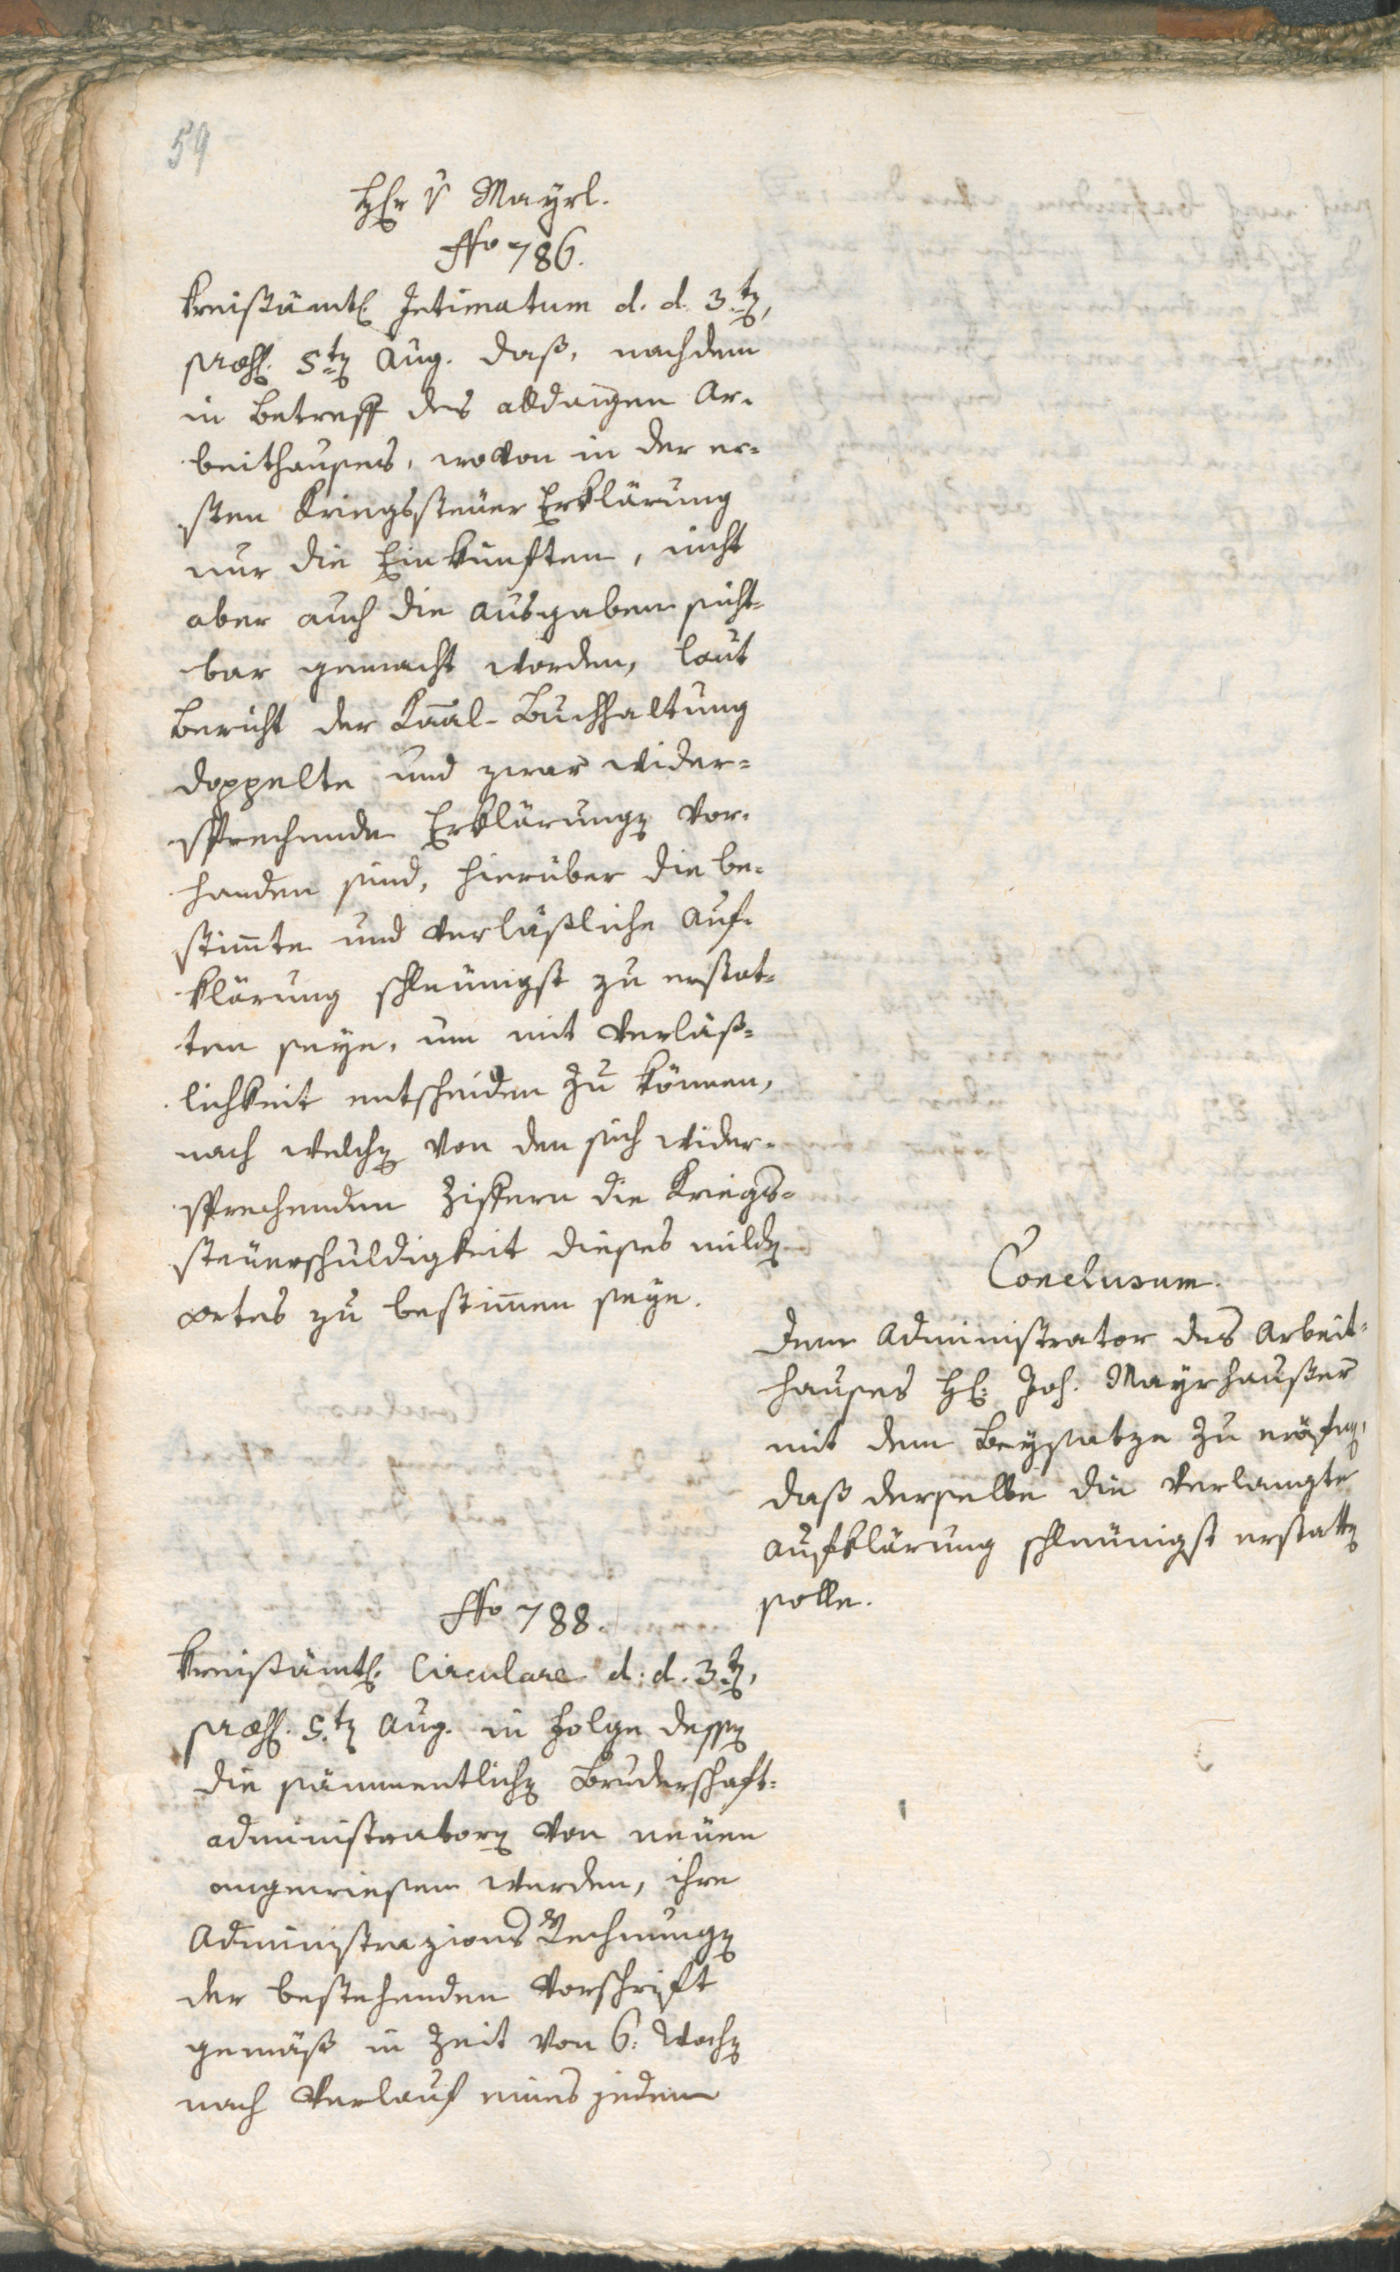 59
H[er]r v Mayrl.
No 786.
kreißämtl. Intimatum d. d. 3.t[en],
præs. 5t[en] Aug. daß, nachdem
in Betreff des alldaigen Ar-
beithauses, wovon in der er-
sten Kriegssteuer Erklärung
nur die Einkünften, nicht
aber auch die Ausgaben sicht-
bar gemacht worden, laut
Bericht der Kaal-Buchhaltung
doppelte und zwar wider-
sprechende Erklärung[en] vor-
handen sind, hierüber die be-
stimte und verläßliche Auf-
klärung schleünigst zu erstat-
ten seye, um mit Verläß-
lichkeit entscheiden zu können,
nach welch[en] von den sich wider-
sprechenden Ziffern die Kriegs-
steüerschuldigkeit dieses mild[en]
Ortes zu bestimen seye.
Conclusum.
Dem Administrator des Arbeit-
hauses H: Joh. Mayrhaußer
mit dem Beysatze zu eröfn[en],
daß derselbe die verlangte
Aufklärung schleünigst erstatt[en]
solle.
No 788.
kreißämtl. Circulare d. d. 3.t[en],
præs. 5.t[en] Aug. in Folge dess[en]
die sämmentlich[en] Bruderschaft-
administrator[en] von neüen
angewiesen werden, ihre
Administrazions Rechnung[en]
der bestehenden Vorschrift
gemäß in Zeit von 6. Woch[en]
nach Verlauf eines jeden